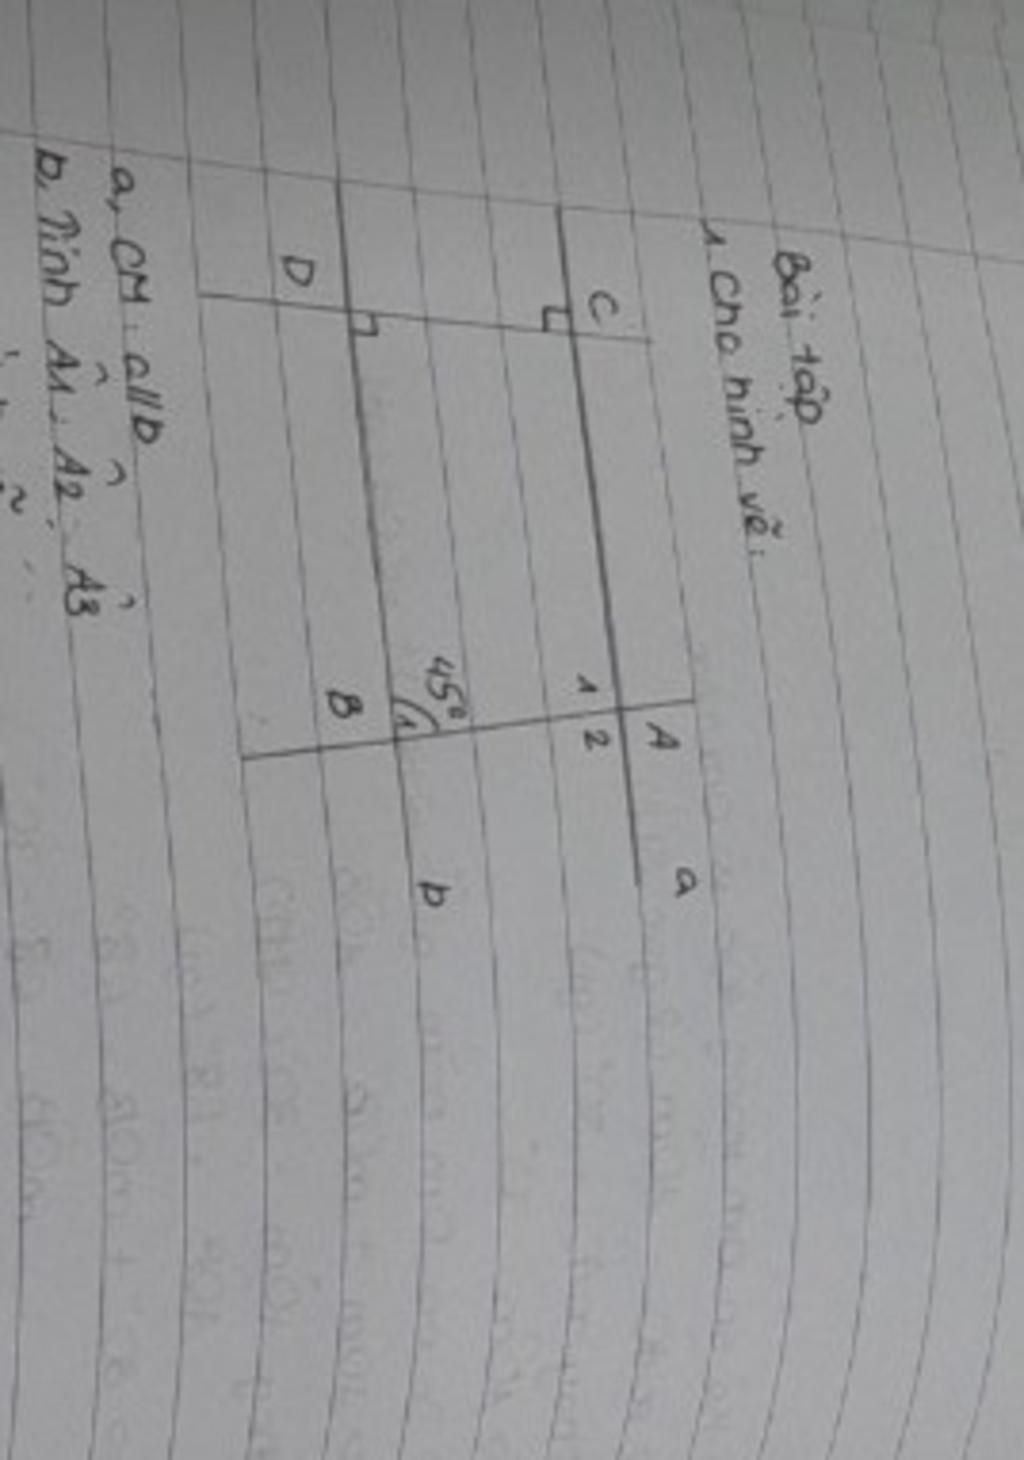 Bài tập
1, Cho hình vẽ:
C
A
a
1
2
45°
1
D
B
b
a, CM: a//b
b, Tính Â1, Â2, Â3